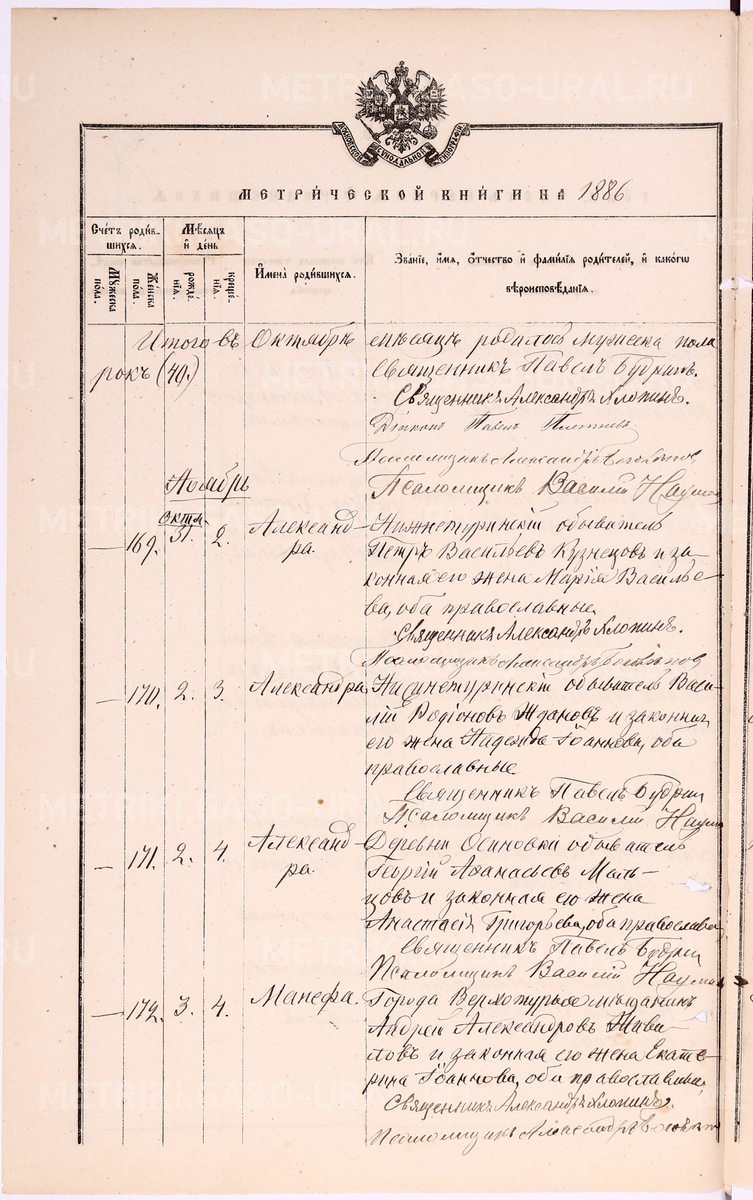 МОСКОВСКОЙ СѴНОДАЛЬНОЙ ТИПОГРАФІИ
МЕТРИ́ЧЕСКОЙ КНИ́ГИ НА 1886
Сче́тъ роди́в-
шихся.
Мѣ́сяцъ
и҆ де́нь
И҆мена̀ роди́вшихся.
Зва́ніе, и҆́мя, ѻ҆́тчество и҆ фами́лія роди́телей, и҆ како́гѡ
вѣроисповѣ́данія.
Му́жеска
по́ла.
Же́нска
по́ла.
рожде́-
нія.
креще́-
нія.
Итого въ Октябрѣ мѣсяцѣ родилось мужеска пола
рокъ (40.) Священникъ Павелъ Будринъ.
Священникъ Александръ Хлопинъ.
Діаконъ Павелъ
Псаломщикъ Александръ
Ноябрь
Псаломщикъ Василій Наумов
— 169. Октя. 31. 2. Александ-
ра.
Нижнетуринскій обыватель
Петръ Васильевъ Кузнецовъ и за-
конная его жена Марія Василье-
ва, оба православные.
Священникъ Александръ Хлопинъ.
Псаломщикъ Александръ
— 170. 2. 3. Александра.
Нижнетуринскій обыватель Васи-
лій Родіоновъ Ждановъ и законная
его жена Надежда Іоаннова, оба
православные.
Священникъ Павелъ Будрин
Псаломщикъ Василій Наумо
— 171. 2. 4. Александ-
ра.
Деревни Осиновки обыватель
Георгій Аѳанасьевъ Маль-
цовъ и законная его жена
Анастасія Григорьева, оба православн
Священникъ Павелъ Будрин
Псаломщикъ Василій Наумов
— 172. 3. 4. Манефа.
Города Верхотурья мѣщанинъ
Андрей Александровъ Живи-
ловъ и законная его жена Екате-
рина Іоаннова, оба православные,
Священникъ Александръ Хлопинъ.
Псаломщикъ Александръ